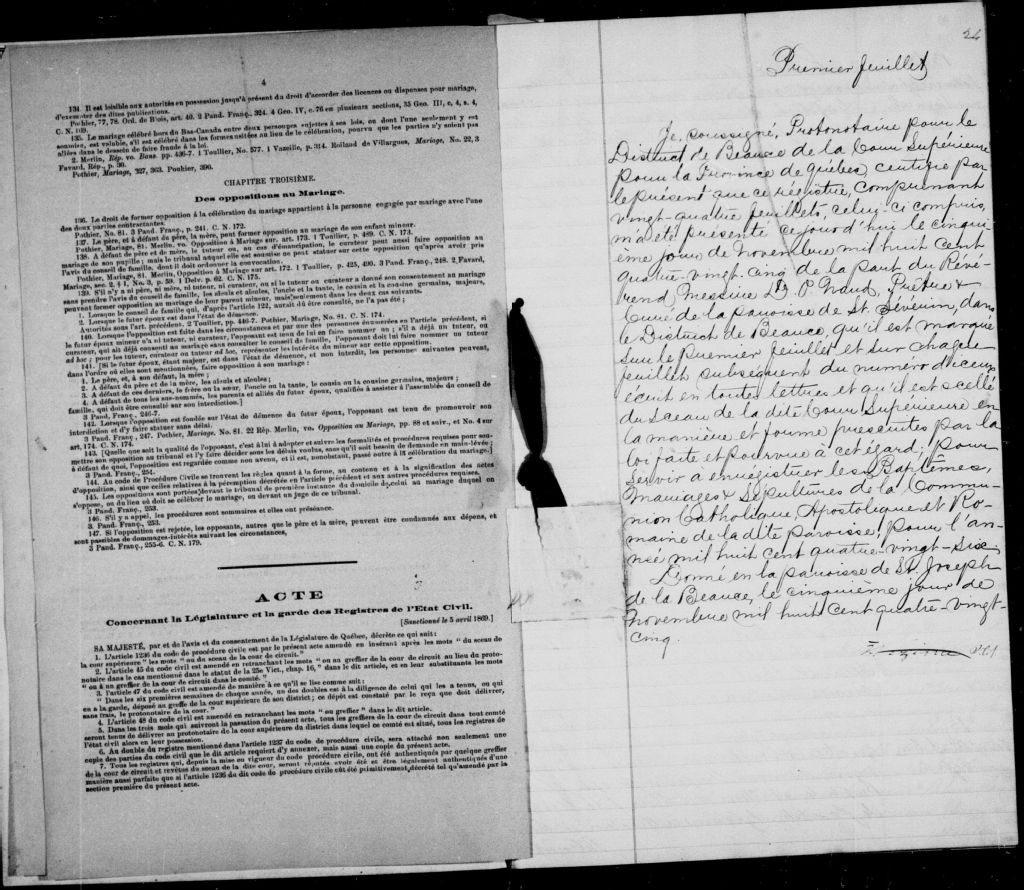 4
134. Il est loisible aux autorités en possession jusqu'à présent du droit d'accorder des licences ou dispenses pour mariage,
d'exempter des dites publications.
Pothier, 77, 78. Ord. de Blois, art. 40. 2 Pand. Franç., 324. 4 Geo. IV, c. 76 en plusieurs sections, 35 Geo. III, c, 4, s. 4,
C. N. 169.
135. Le mariage célébré hors du Bas-Canada entre deux personnes sujettes à ses lois, ou dont l'une seulement y est
soumise, est valable, s'il est célébré dans les formes usitées au lieu de la célébration, pourvu que les parties n'y soient pas
allées dans le dessein de faire fraude à la loi.
2. Merlin, Rép. vo. Bans. pp. 436-7. 1 Toullier, No. 577. 1 Vazeille, p. 314. Rolland de Villargues, Mariage, No. 22, 3
Favard, Rép., p. 30.
Pothier, Mariage, 327, 363. Pouhier, 390.
CHAPITRE TROISIÈME.
Des oppositions au Mariage.
136. Le droit de former opposition à la célébration du mariage appartient à la personne engagée par mariage avec l'une
des deux parties contractantes.
Pothier, No. 81. 3 Pand. Franç., p. 241. C. N. 172.
137. Le père, et à défaut du père, la mère, peut former opposition au mariage de son enfant mineur.
Pothier, Mariage, 81. Merlin. vo. Opposition à Mariage sur. art. 173. 1 Toullier, p. 489. C. N. 173.
138. A défaut de père et de mère, le tuteur ou, au cas d'émancipation, le curateur peut aussi faire opposition au
mariage de son pupille; mais le tribunal auquel elle est soumise ne peut statuer sur cette opposition qu'après avoir pris
l'avis du conseil de famille, dont il doit ordonner la convocation.
Pothier, Mariage, 81. Merlin, Opposition à Mariage sur art. 172. 1 Toullier, p. 425, 490. 3 Pand. Franç., 248. 2, Favard,
Mariage, sec. 2, § 1, No. 3, p. 39. 1 Delv. p. 62. C. N. 175.
139. S'il n'y a ni père, ni mère, ni tuteur, ni curateur, ou si le tuteur ou curateur a donné son consentement au mariage
sans prendre l'avis du conseil de famille, les aïeuls et aïeules, l'oncle et la tante, le cousin et la cousine germains, majeurs,
peuvent former opposition au mariage de leur parent mineur, mais seulement dans les deux cas suivants.
1. Lorsque le conseil de famille qui, d'après l'article 122, aurait dû être consulté, ne l'a pas été;
2. Lorsque le futur époux est dans l'état de démence.
Autorités sous l'art. précédent. 2 Toullier, pp. 446-7. Pothier, Mariage, No. 81. C. N. 174.
140. Lorsque l'opposition est faite dans les circonstances et par une des personnes énumérées en l'article précédent, si
le futur époux mineur n'a ni tuteur, ni curateur, l'opposant est tenu de lui en faire nommer un; s'il a déjà un tuteur, ou
curateur, qui ait déjà consenti au mariage sans consulter le conseil de famille, l'opposant doit lui faire nommer un tuteur
ad hoc; pour les tuteur, curateur ou tuteur ad hoc, représenter les intérêts du mineur sur cette opposition.
141. [Si le futur époux, étant majeur, est dans l'état de démence, et non interdit, les personnes suivantes peuvent,
dans l'ordre où elles sont mentionnées, faire opposition à son mariage :
1. Le père, et, à son défaut, la mère;
2. A défaut du père et de la mère, les aïeuls et aïeules;
3. A défaut de ces derniers, le frère ou la sœur, l'oncle ou la tante, le cousin ou la cousine germains, majeurs;
4. A défaut de tous les sus-nommés, les parents et alliés du futur époux, qualifiés à assister à l'assemblée du conseil de
famille, qui doit être consulté sur son interdiction.]
3 Pand. Franç., 246-7.
142. Lorsque l'opposition est fondée sur l'état de démence du futur époux, l'opposant est tenu de promouvoir son
interdiction et d'y faire statuer sans délai.
3 Pand. Franç., 247. Pothier, Mariage, No. 81. 22 Rép. Merlin, vo. Opposition au Mariage, pp. 88 et suiv., et No. 4 sur
art. 174. C. N. 174.
143. [Quelle que soit la qualité de l'opposant, c'est à lui à adopter et suivre les formalités et procédures requises pour sou-
mettre son opposition au tribunal et l'y faire décider sous les délais voulus, sans qu'il soit besoin de demande en main-levée;
à défaut de quoi, l'opposition est regardée comme non avenu, et il est, nonobstant, passé outre à la célébration du mariage.]
3 Pand. Franç., 254.
144. Au code de Procédure Civile se trouvent les règles quant à la forme, au contenu et à la signification des actes
d'opposition, ainsi que celles relatives à la péremption décrétée en l'article précédent et aux autres procédures requises.
145. Les oppositions sont portées devant le tribunal de première instance du domicile de celui au mariage duquel on
s'oppose, ou du lieu où doit se célébrer le mariage, ou devant un juge de ce tribunal.
3 Pand. Franç., 253.
146. S'il y a appel, les procédures sont sommaires et elles ont préséance.
3 Pand. Franç., 253.
147. Si l'opposition est rejetée, les opposants, autres que le père et la mère, peuvent être condamnés aux dépens, et
sont passibles de dommages-intérêts suivant les circonstances,
3 Pand. Franç., 255-6. C. N. 179.
ACTE
Concernant la Législature et la garde des Registres de l'Etat Civil.
[Sanctionné le 5 avril 1869.]
SA MAJESTÉ, par et de l'avis et du consentement de la Législature de Québec, décrète ce qui suit:
1. L'article 1236 du code de procédure civile est par le présent acte amendé en insérant après les mots "du sceau de
la cour supérieure" les mots "ou du sceau de la cour de circuit."
2. L'article 45 du code civil est amendé en retranchant les mots "ou au greffier de la cour de circuit au lieu du proto-
notaire dans le cas mentionné dans le statut de la 25e Vict., chap. 16," dans le dit article, et en leur substituants les mots
"ou à un greffier de la cour de circuit dans le comté."
3. l'article 47 du code civil est amendé de manière à ce qu'il se lise comme suit:
"Dans les six premières semaines de chaque année, un des doubles est à la diligence de celui qui les a tenus, ou qui
en a la garde, déposé au greffe de la cour supérieure de son district; ce dépôt est constaté par le reçu que doit délivrer,
sans frais, le protonotaire de la cour."
4. L'article 48 du code civil est amendé en retranchant les mots "ou greffier" dans le dit article.
5. Dans les trois mois qui suivront la passation du présent acte, tous les greffiers de la cour de circuit dans tout comté
seront tenus de délivrer au protonotaire de la cour supérieure du district dans lequel ce comté est situé, tous les registres de
l'état civil alors en leur possession.
6. Au double du registre mentionné dans l'article 1237 du code de procédure civile, sera attaché non seulement une
copie des parties du code civil que le dit article requiert d'y annexer, mais aussi une copie du présent acte.
7. Tous les registres qui, depuis la mise en vigueur du code procédure civile, ont été authentiqués par quelque greffier
de la cour de circuit et revêtus du sceau de la dite cour, seront réputés avoir été et être légalement authentiqués d'une
manière aussi parfaite que si l'article 1236 du dit code de procédure civile eût été primitivement décrété tel qu'amendé par la
section première du présent acte.
24
Premier feuillet
Je, soussigné, Protonotaire pour le
District de Beauce de la Cour Supérieure
pour la Province de Québec, certifie par
le présent que ce régistre, comprenant
vingt-quatre feuillets, celui-ci compris,
m'a été présenté ce jour d'hui le cinqui-
ème jour de Novembre mil huit cent
quatre-vingt-cinq de la part du Révé-
rend Messire D. P Naud, Prêtre &
Curé de la paroisse de St. Séverin, dans
le District de Beauce, qu'il est marqué
sur le premier feuillet et sur chaque
feuillet subséquent du numéro d'iceux
écrit en toutes lettres et qu'il est scellé
du sceau de la dite Cour Supérieure en
la manière et forme prescrites par la
loi faite et pourvue à cet égard; pour
servir à enrégistrer les Baptêmes,
Mariages & Sépultures de la Commu-
nion Catholique, Apostolique et Ro-
maine de la dite paroisse, pour l'an-
née mil huit cent quatre-vingt-six.
Donné en la paroisse de St. Joseph
de la Beauce, le cinquième jour de
Novembre mil huit cent quatre-vingt-
cinq.